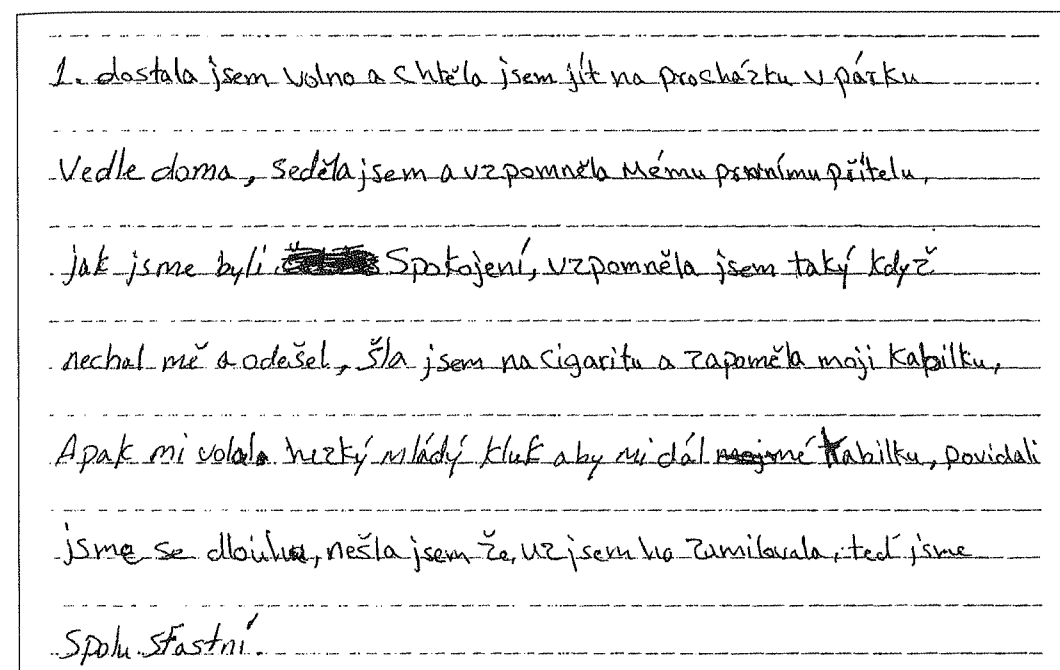 1. dostala jsem volno a chtěla jsem jít na procházku v párku
Vedle doma, seděla jsem a vzpomněla mému prvnímu přítelu,
jak jsme byli Spokojení, vzpomněla jsem taký když
nechal mě a odešel, šla jsem na cigaritu a zapoměla moji kabilku,
A pak mi volala hezký mládý kluk aby mi dál mé kabilku, povidali
jsme se dlouhu, nešla jsem že, uz jsem ho zamilovala, teď jsme
Spolu sťastní.